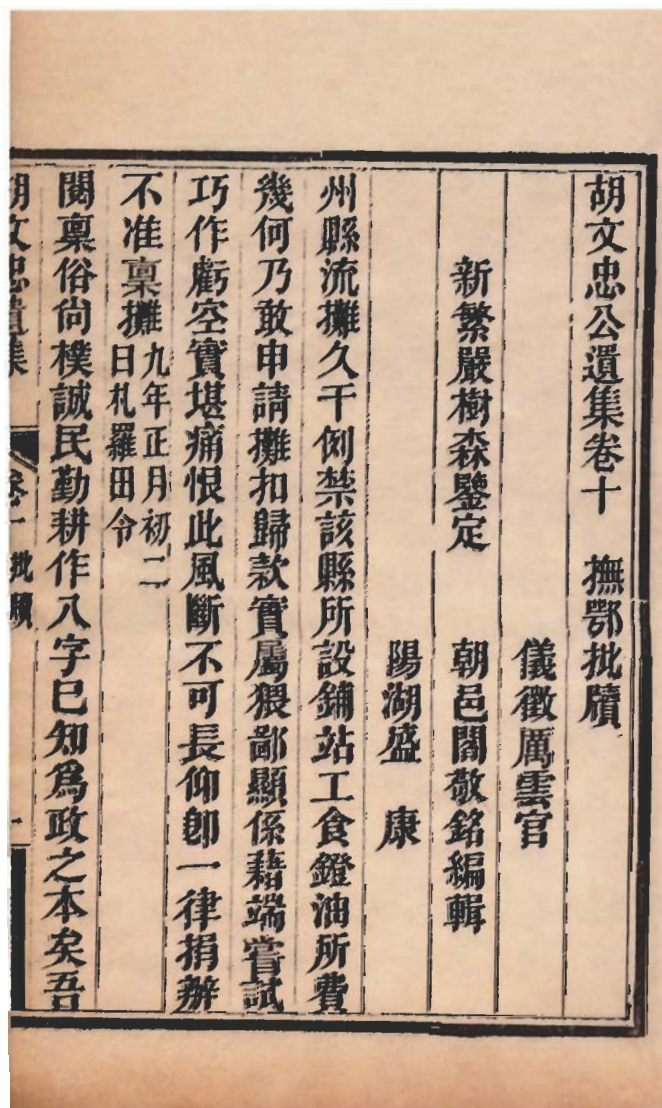 胡文忠公遺集卷十　撫鄂批牘
儀徵厲雲官
新繁嚴樹森鑒定　朝邑閻敬銘編輯
陽湖盛　康
州縣流攤久干例禁該縣所設鋪站工食鐙油所費
幾何乃敢申請攤扣歸款實屬猥鄙顯係藉端嘗試
巧作虧空實堪痛恨此風斷不可長仰卽一律捐辦
不准稟攤九年正月初二
日札羅田令
閱稟俗尙樸誠民勤耕作八字已知爲政之本矣吾
胡文忠遺集　卷十　批牘　一